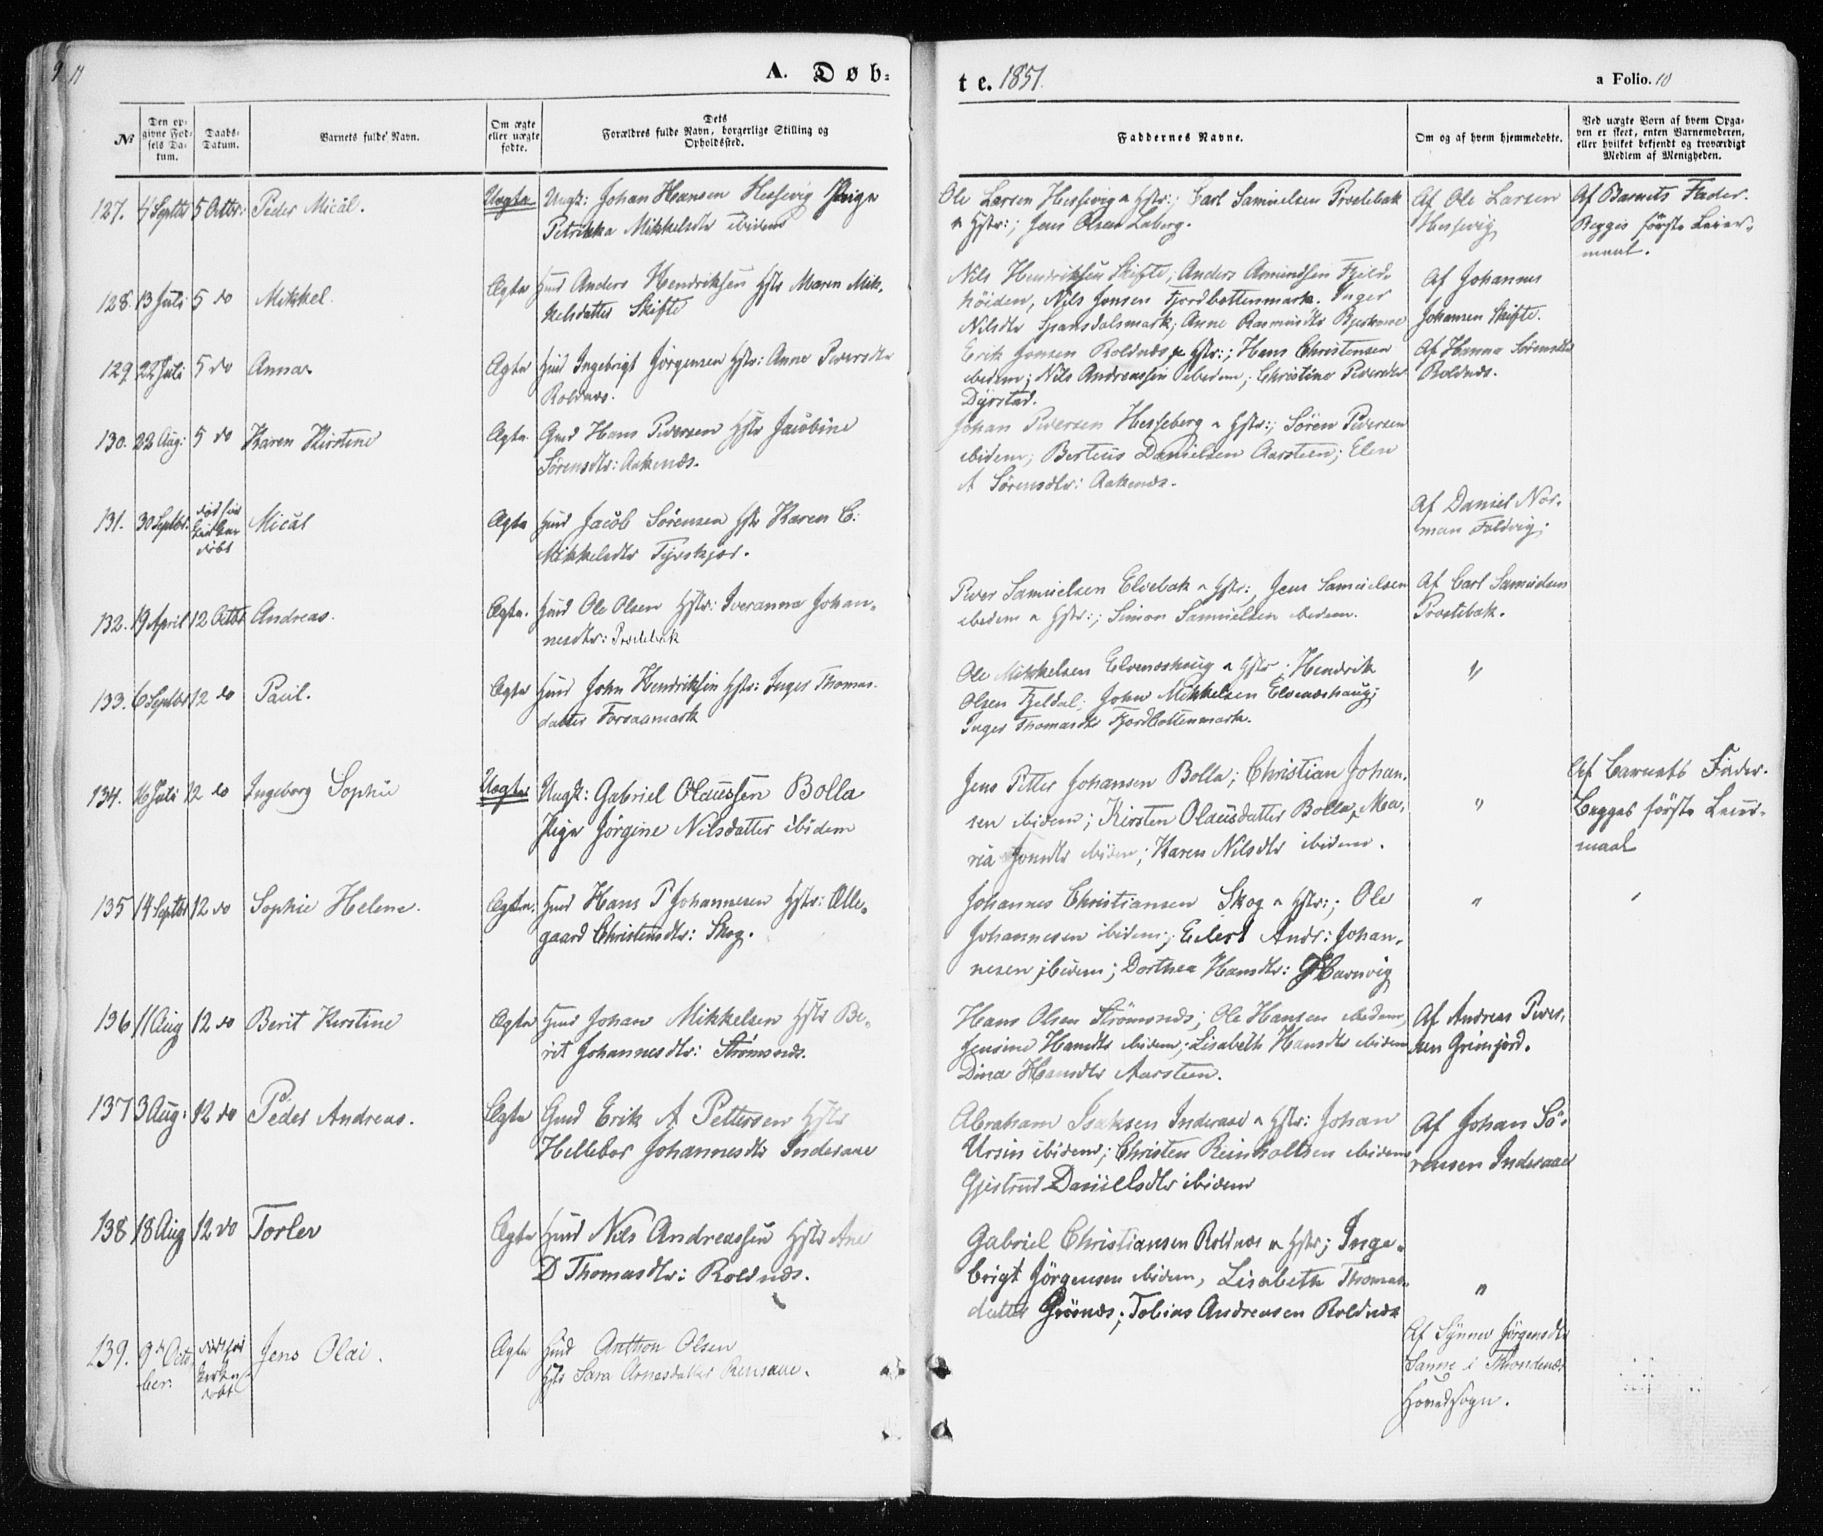 9 11
A. Døb-
te. 1851.
a Folio. 10
№
Den op-
givne Fød-
sels Da-
tum.
Daabs-
Datum.
Barnets fulde Navn.
Om ægte
eller uægte
fødte.
Dets
Forældres fulde Navn, borgerlige Stilling og
Opholdssted.
Faddernes Navne.
Om og af hvem hjemmedøbte.
Ved uægte Børn af hvem Opga-
ven er skeet, enten Barnemoderen,
eller hvilket bekjendt og troværdigt
Medlem af Menigheden.
127. 4 Septbr 5 Octbr: Peder Mical. Uægte Ungk: Johan Hansen Hessevig Pige
Petrikka Mikkelsdtr ibidem
Ole Larsen Hessevig & Hstr:; Carl Samuelsen Prostebak
& Hstr:; Jens Olsen Laberg.
Af Ole Larsen
Hessevig
Af Barnets Fader.
Begges første Leier-
maal.
128. 13 Juli 5 do Mikkel. Ægte Huusmd Anders Hendriksen Hstr Maren Mik-
kelsdatter Skifte
Nils Hendriksen Skifte; Anders Amundsen Fjeld-
höiden, Nils Jonsen Fjordbottenmark. Inger
Nilsdtr Spansdalsmark; Anne Rasmusdtr
Af Johannes
Johansen Skifte.
129 22 Juli 5 do Anna Ægte Hmd Ingebrigt Jörgensen Hstr: Anne Pedersdtr
Roldnæs.
Erik Jonsen Roldnæs & Hstr:; Hans Christensen
ibidem; Nils Andreassen ibidem; Christine Pedersdtr
Dyrstad.
Af Hanna Sørensdtr
Roldnæs.
130. 22 Aug: 5 do Karen Kirstine Ægte Gmd Hans Pedersen Hstr Jacobine
Sørensdtr: Aakenæs.
Johan Pedersen Hesseberg & Hstr:; Sören Pedersen
ibidem; Berteus Danielsen Aarsteen; Elen
A Sørensdtr: Aakenæs.
131. 30 Septbr: død før
døbt Mical Ægte Hmd Jacob Sørensen Hstr Karen C:
Mikkelsdtr
Af Daniel Nor-
man Foldvig.
132. 19 April 12 Octbr Andreas. Ægte. Hmd Ole Olsen Hstr: Iveranna Johan-
nesdtr: Prostebak
Peder Samuelsen Elvebak & Hstr:, Jens Samuelsen
ibidem & Hstr:; Simon Samuelsen ibidem.
Af Carl Samuelsen
Prostebak.
133. 6 Septbr 12 do Paul. Ægte Hmd John Hendriksen Hstr: Inger Thomas-
datter Forsaamark
Ole Mikkelsen Elvenæshaug & Hstr; Hendrik
Olsen Fjeldal; John Mikkelsen Elvenæshaug;
Inger Thomasdtr Fjordbottenmark.
"
134. 16 Juli 12 do Ingeborg Sophie Uægte Ungk: Gabriel Olaussen Bolla
Pige Jørgine Nilsdatter ibidem
Jens Petter Johansen Bolla; Christian Johan-
sen ibidem; Kirsten Olausdatter Bolla, Ma-
ria Jonsdtr ibidem; Karen Nilsdtr ibidem.
"
Af Barnets Fader.
Begges første Leier-
maal
135 14 Septbr 12 do Sophie Helene. Ægte. Hmd Hans P Johannesen Hstr: Olle-
gaard Christensdtr: Skog.
Johannes Christiansen Skog & Hstr:; Ole
Johannesen ibidem; Eilert Andr: Johan-
nesen ibidem; Dorthea Hansdtr: Havnvig
"
"
136 11 Aug 12 do Berit Kirstine Ægte Hmd Johan Mikkelsen Hstr Be-
rit Johannesdtr: Strømsnæs.
Hans Olsen Strömsnæs; Ole Hansen ibidem,
Jensine Hansdtr ibidem; Lisabeth Hansdtr ibidem
Dina Hansdtr Aarsteen.
Af Andreas Peder-
sen Grimjord.
137 3 Aug: 12 do Peder Andreas. Ægte Gmd Erik A Pettersen Hstr
Hellebor Johannesdtr Inderaae
Abraham Isaksen Inderaae & Hstr: Johan
Ursin ibidem; Christen Reinholtsen ibidem
Gjertrud Danielsdtr ibidem
Af Johan Sö-
rensen Inderaae
138 18 Aug 12 do Torlev Ægte Hmd Nils Andreassen Hstr Ane
D Thomasdtr: Roldnæs.
Gabriel Christiansen Roldnæs & Hstr; Inge-
brigt Jörgensen ibidem, Lisabeth Thomas-
datter Grønæs; Tobias Andreasen Roldnæs
"
139. 9de Octo-
ber. død før
døbt Jens Olai. Ægte Hmd Anthon Olsen
Hstr Sara Arnesdatter Rensaae.
Af Synnev Jørgensdtr
Sanne i Throndenæs
Hovedsogn.